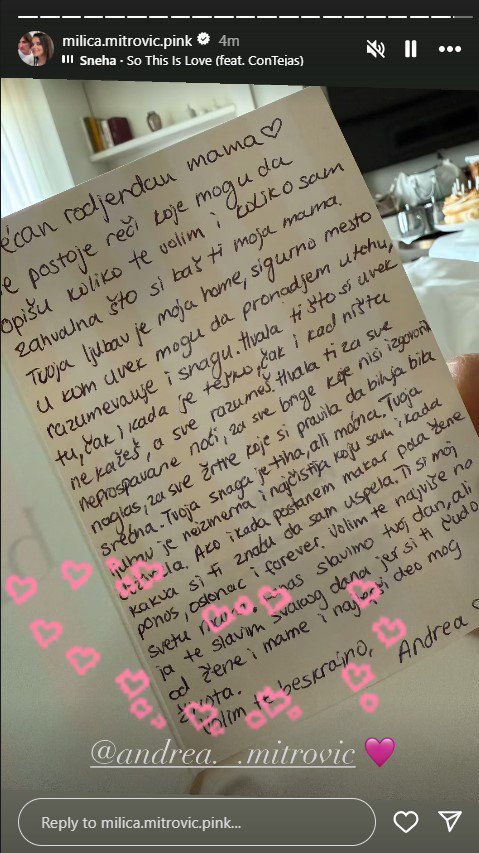 milica.mitrovic.pink 4m
Sneha · So This Is Love (feat. ConTejas)
ećan rodjendan mama♡
e postoje reči koje mogu da
opišu koliko te volim i koliko sam
zahvalna što si baš ti moja mama.
Tvoja ljubav je moja home, sigurno mesto
u kom uvek mogu da pronadjem utehu,
razumevanje i snagu. Hvala ti što si uvek
tu, čak i kada je teško, čak i kad ništa
ne kažeš, a sve razumeš. Hvala ti za sve
neprospavane noći, za sve brige koje nisi izgovorila
naglas, za sve žrtve koje si pravila da bih ja bila
srećna. Tvoja snaga je tiha, ali moćna. Tvoja
ljubav je neizmerna i najčistija koju sam i kada
Ako ikada postanem makar pola žene
kakva si ti znaću da sam uspela. Ti si moj
ponos, oslonac i forever. Volim te najviše na
svetu slavimo tvoj dan, ali
ja te slavim svakog dana jer si ti čudo
od žene i mame i najlepši deo mog
života.
Volim te beskrajno, Andrea ♡
@andrea._.mitrovic 💗
Reply to milica.mitrovic.pink...